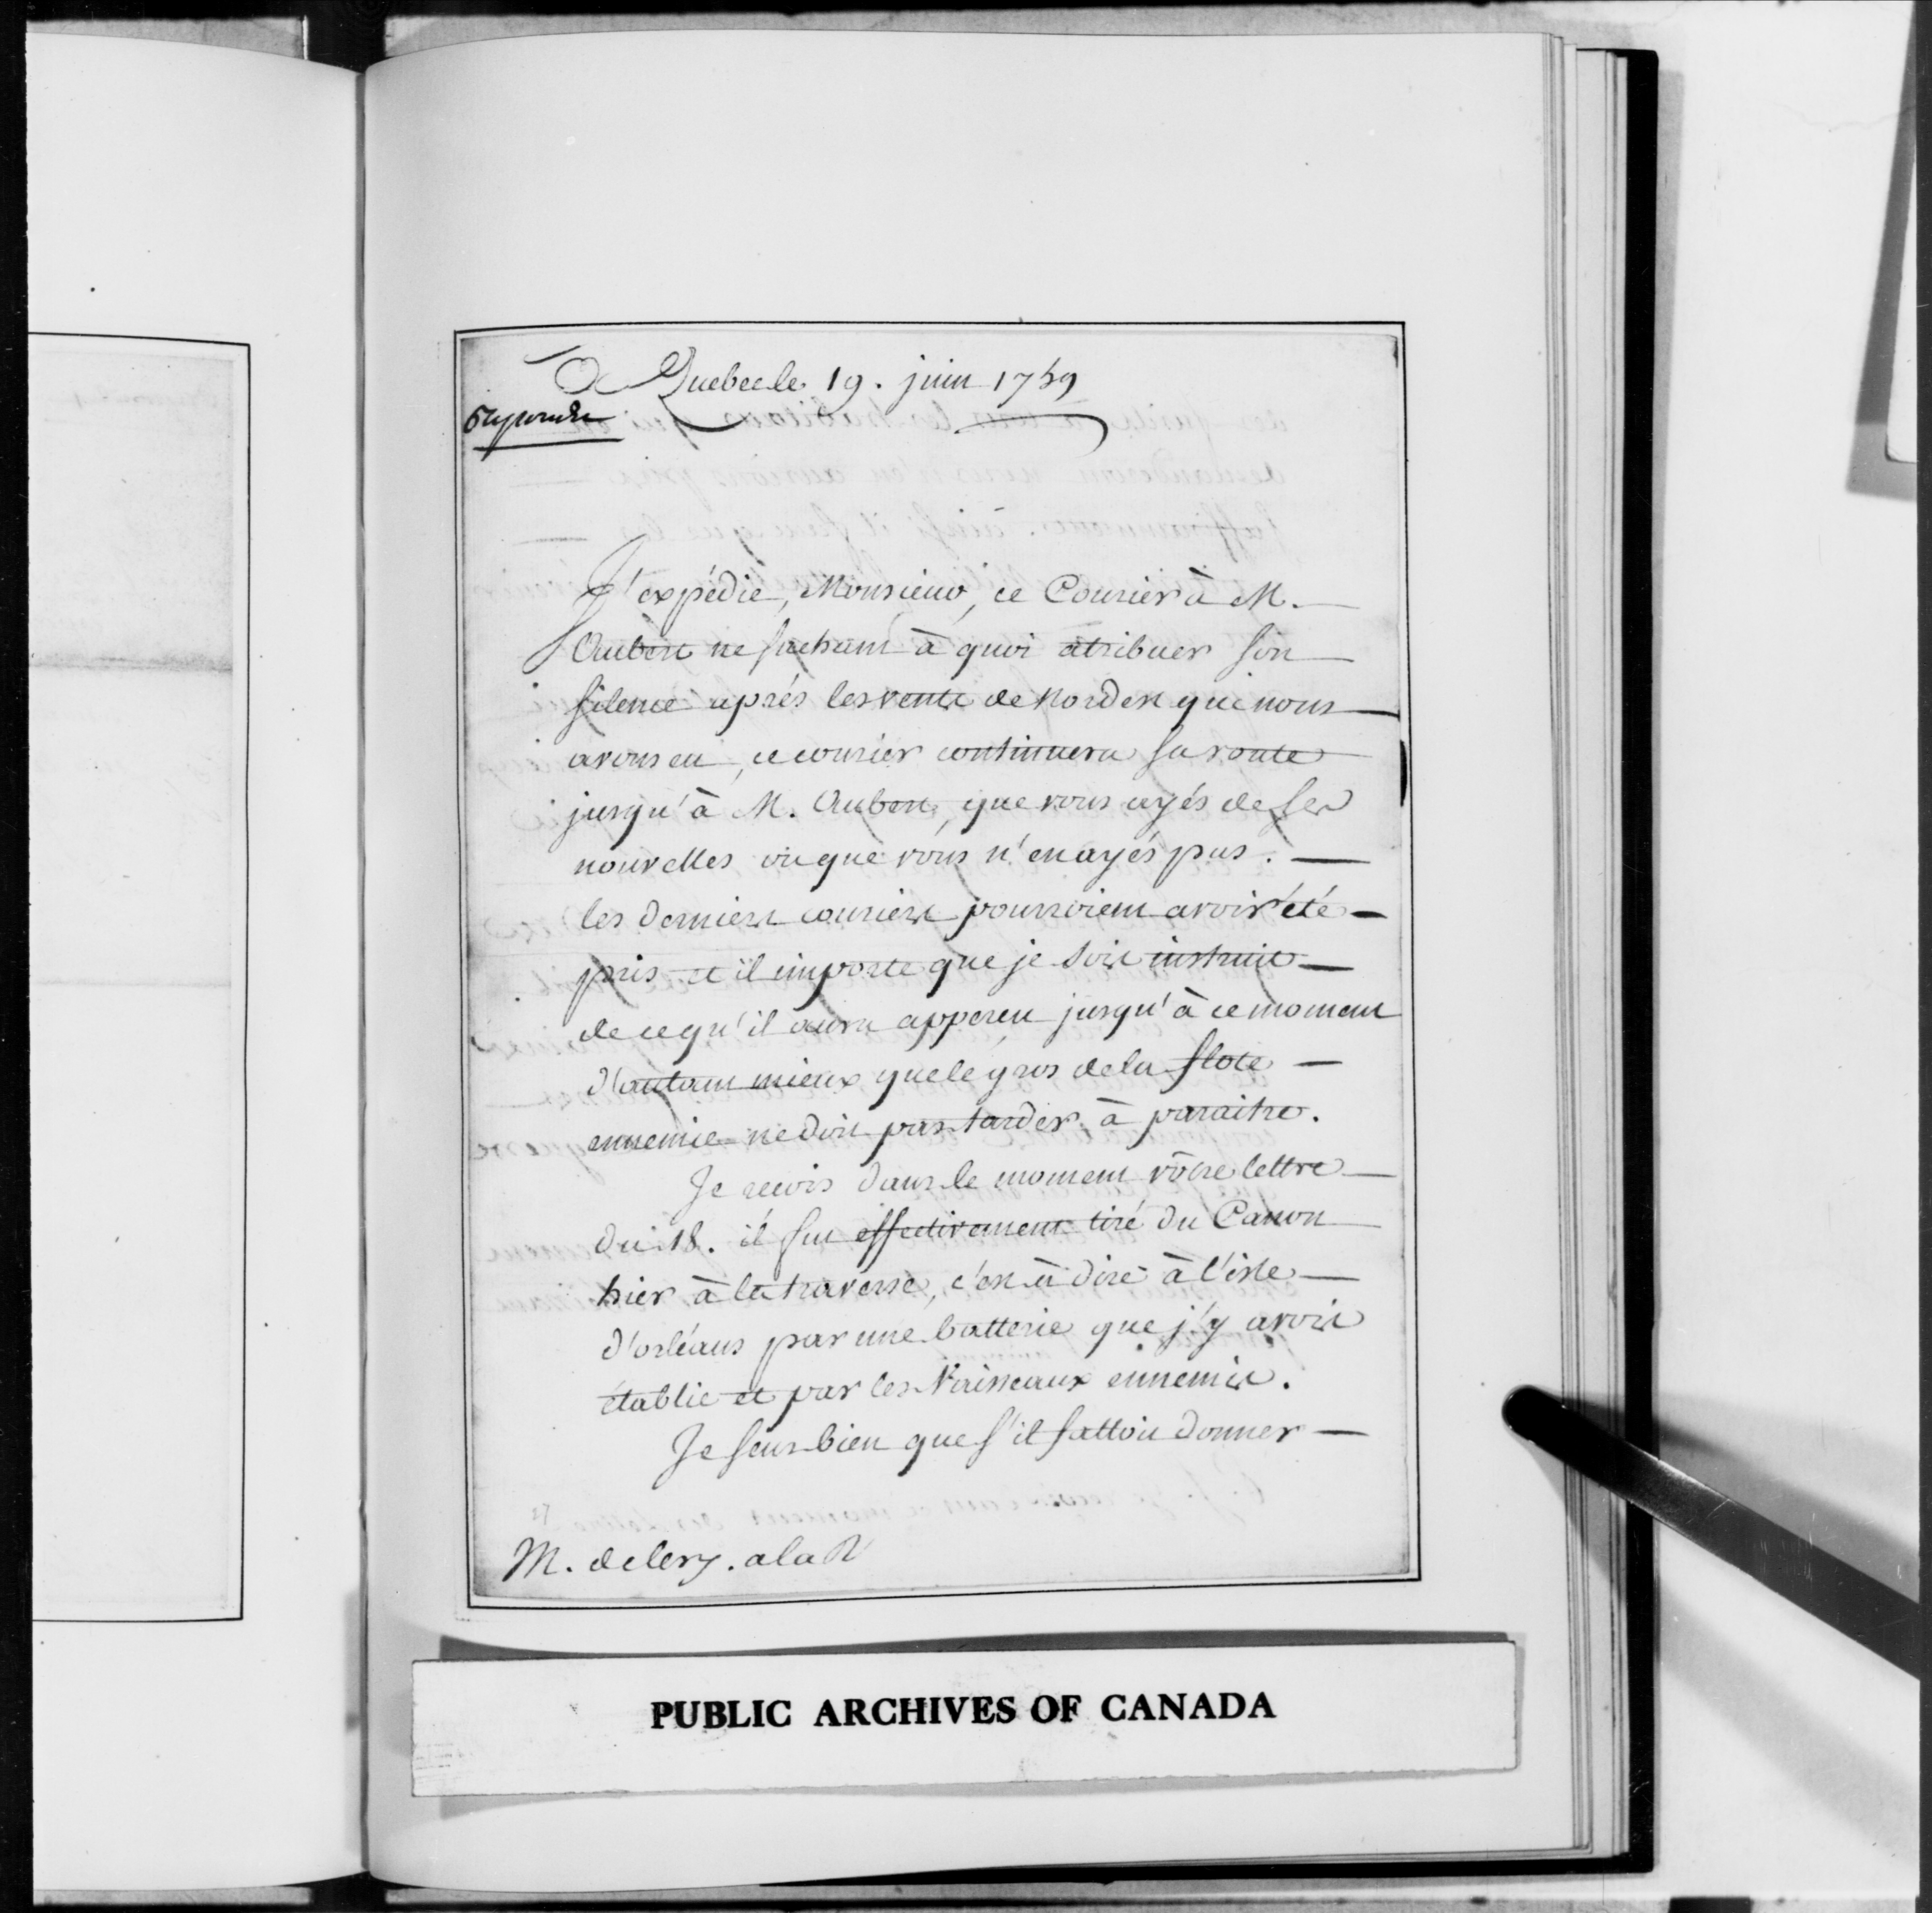 De Quebec le 19. juin 1759
Repondu
J'expédie, Monsieur, ce Courier à M.
Aubert ne sachant à quoi atribuer son
silence après les vents de Nordest que nous
avons eu, ce courier continuera sa route
jusqu'à M. Aubert, que vous ayés de ses
nouvelles ou que vous n'en ayés pas.
les derniers couriers pourroient avoir été
pris et il importe que je sois instruit
de ce qu'il aura apperçu jusqu'à ce moment
d'autant mieux que le gros de la flote
ennemie ne doit pas tarder à paraitre.
Je reçois dans le moment vôtre lettre
du 18. il fut effectivement tiré du Canon
hier à la traverse, c'est à dire à l'isle
d'orléans par une batterie que j'y avois
établie et par les Vaisseaux ennemis.
Je sens bien que s'il falloit donner
M. de lery. a la R
PUBLIC ARCHIVES OF CANADA